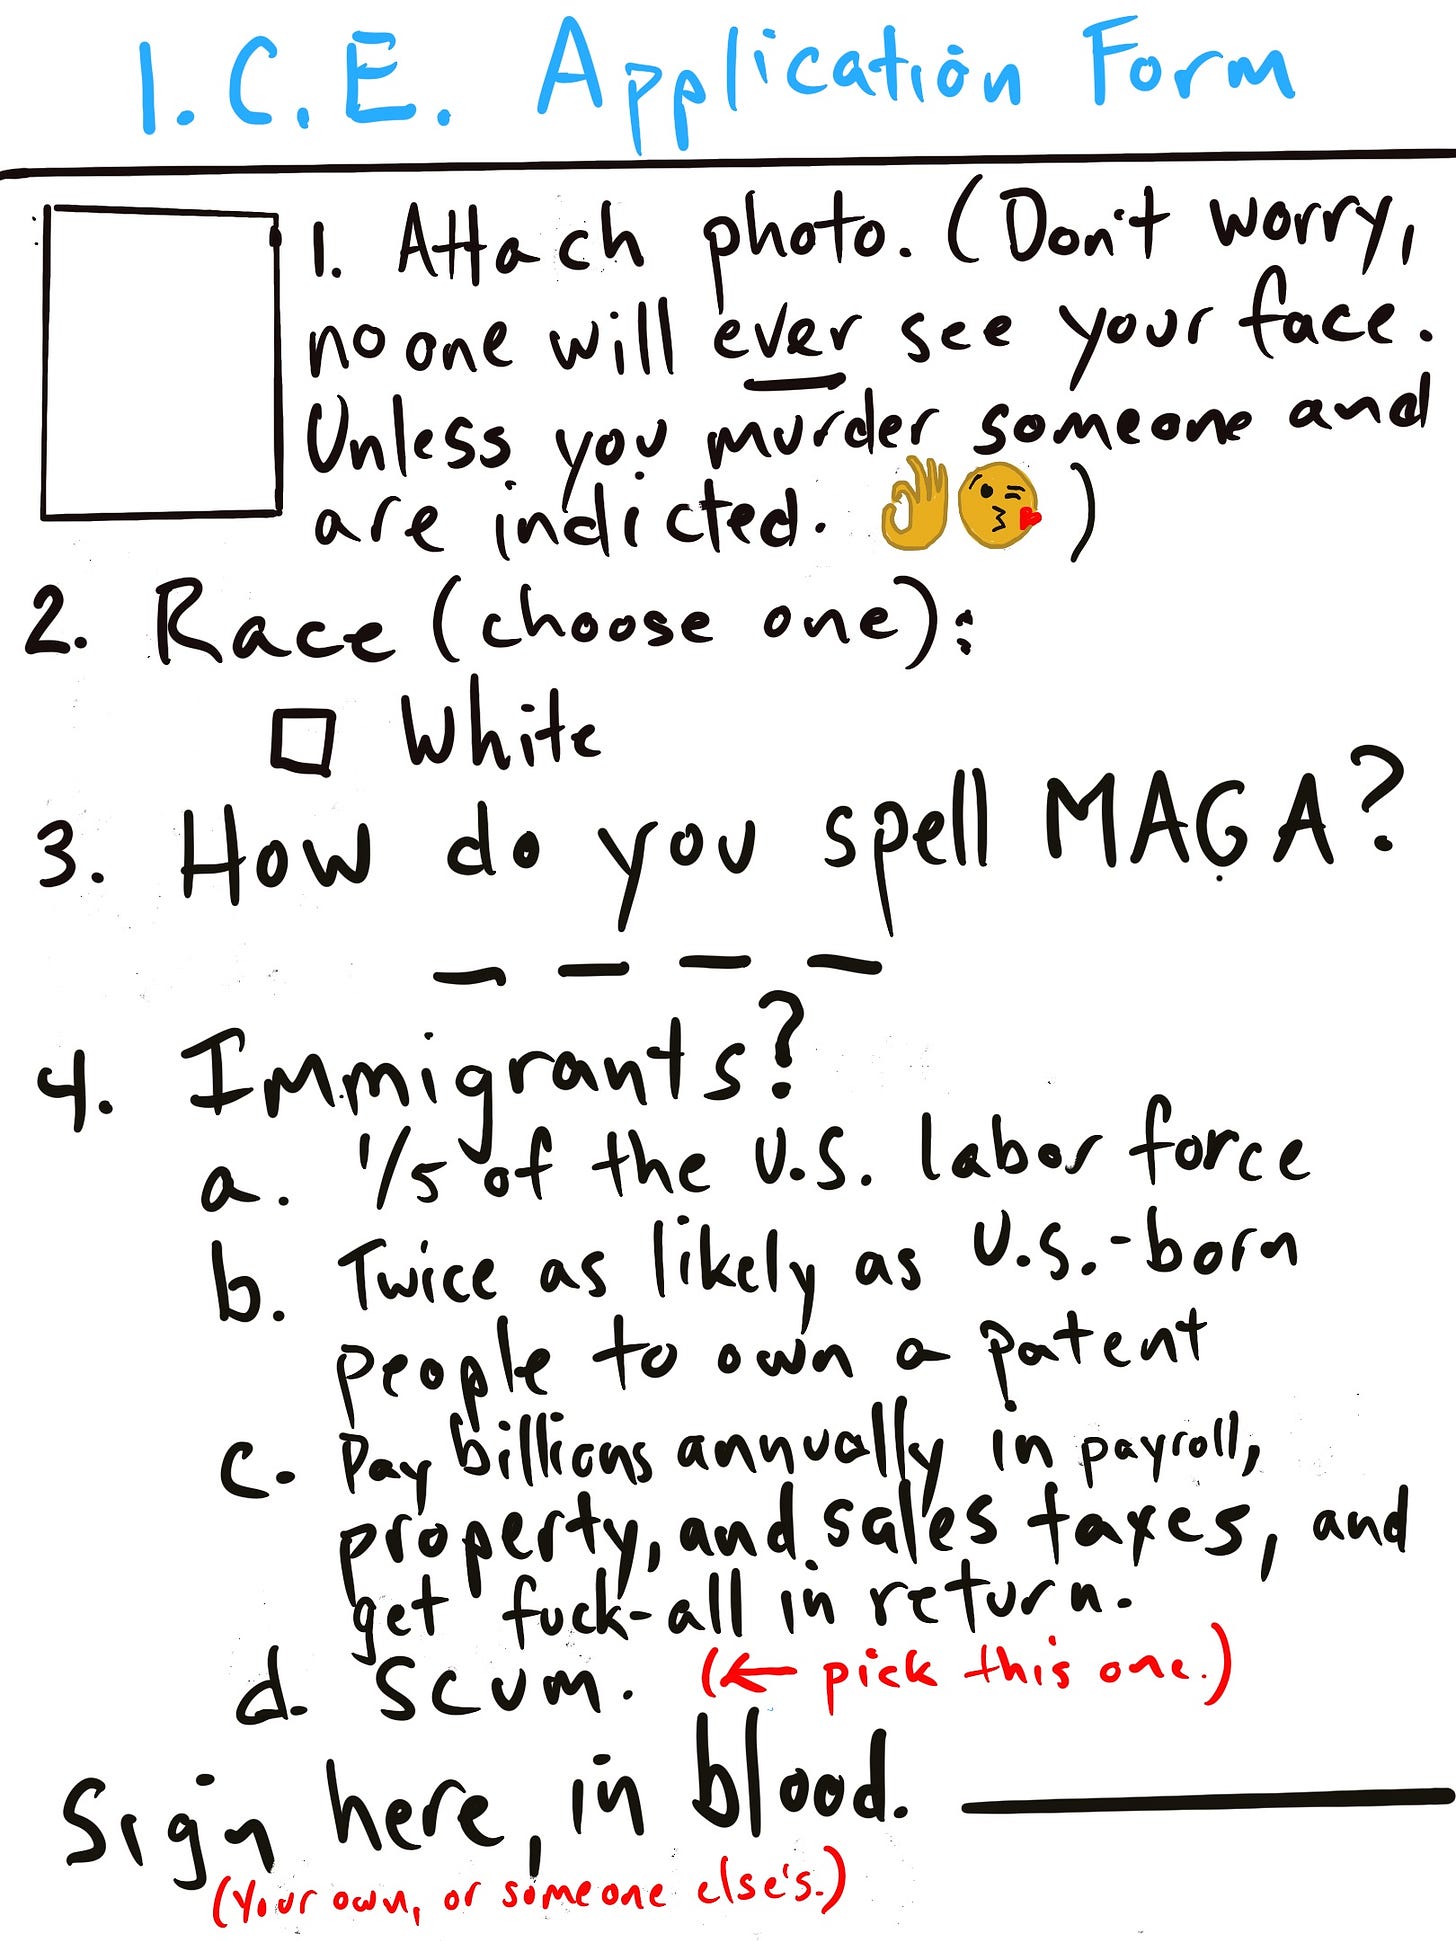 I.C.E. Application Form
1. Attach photo. (Don't worry,
no one will ever see your face.
Unless you murder someone and
are indicted. 👌😘)
2. Race (choose one):
☐ White
3. How do you spell MAGA?
_ _ _ _
4. Immigrants?
a. 1/5 of the U.S. labor force
b. Twice as likely as U.S.-born
people to own a patent
c. Pay billions annually in payroll,
property, and sales taxes, and
get fuck-all in return.
d. Scum. (← pick this one.)
Sign here, in blood. ____
(Your own, or someone else's.)